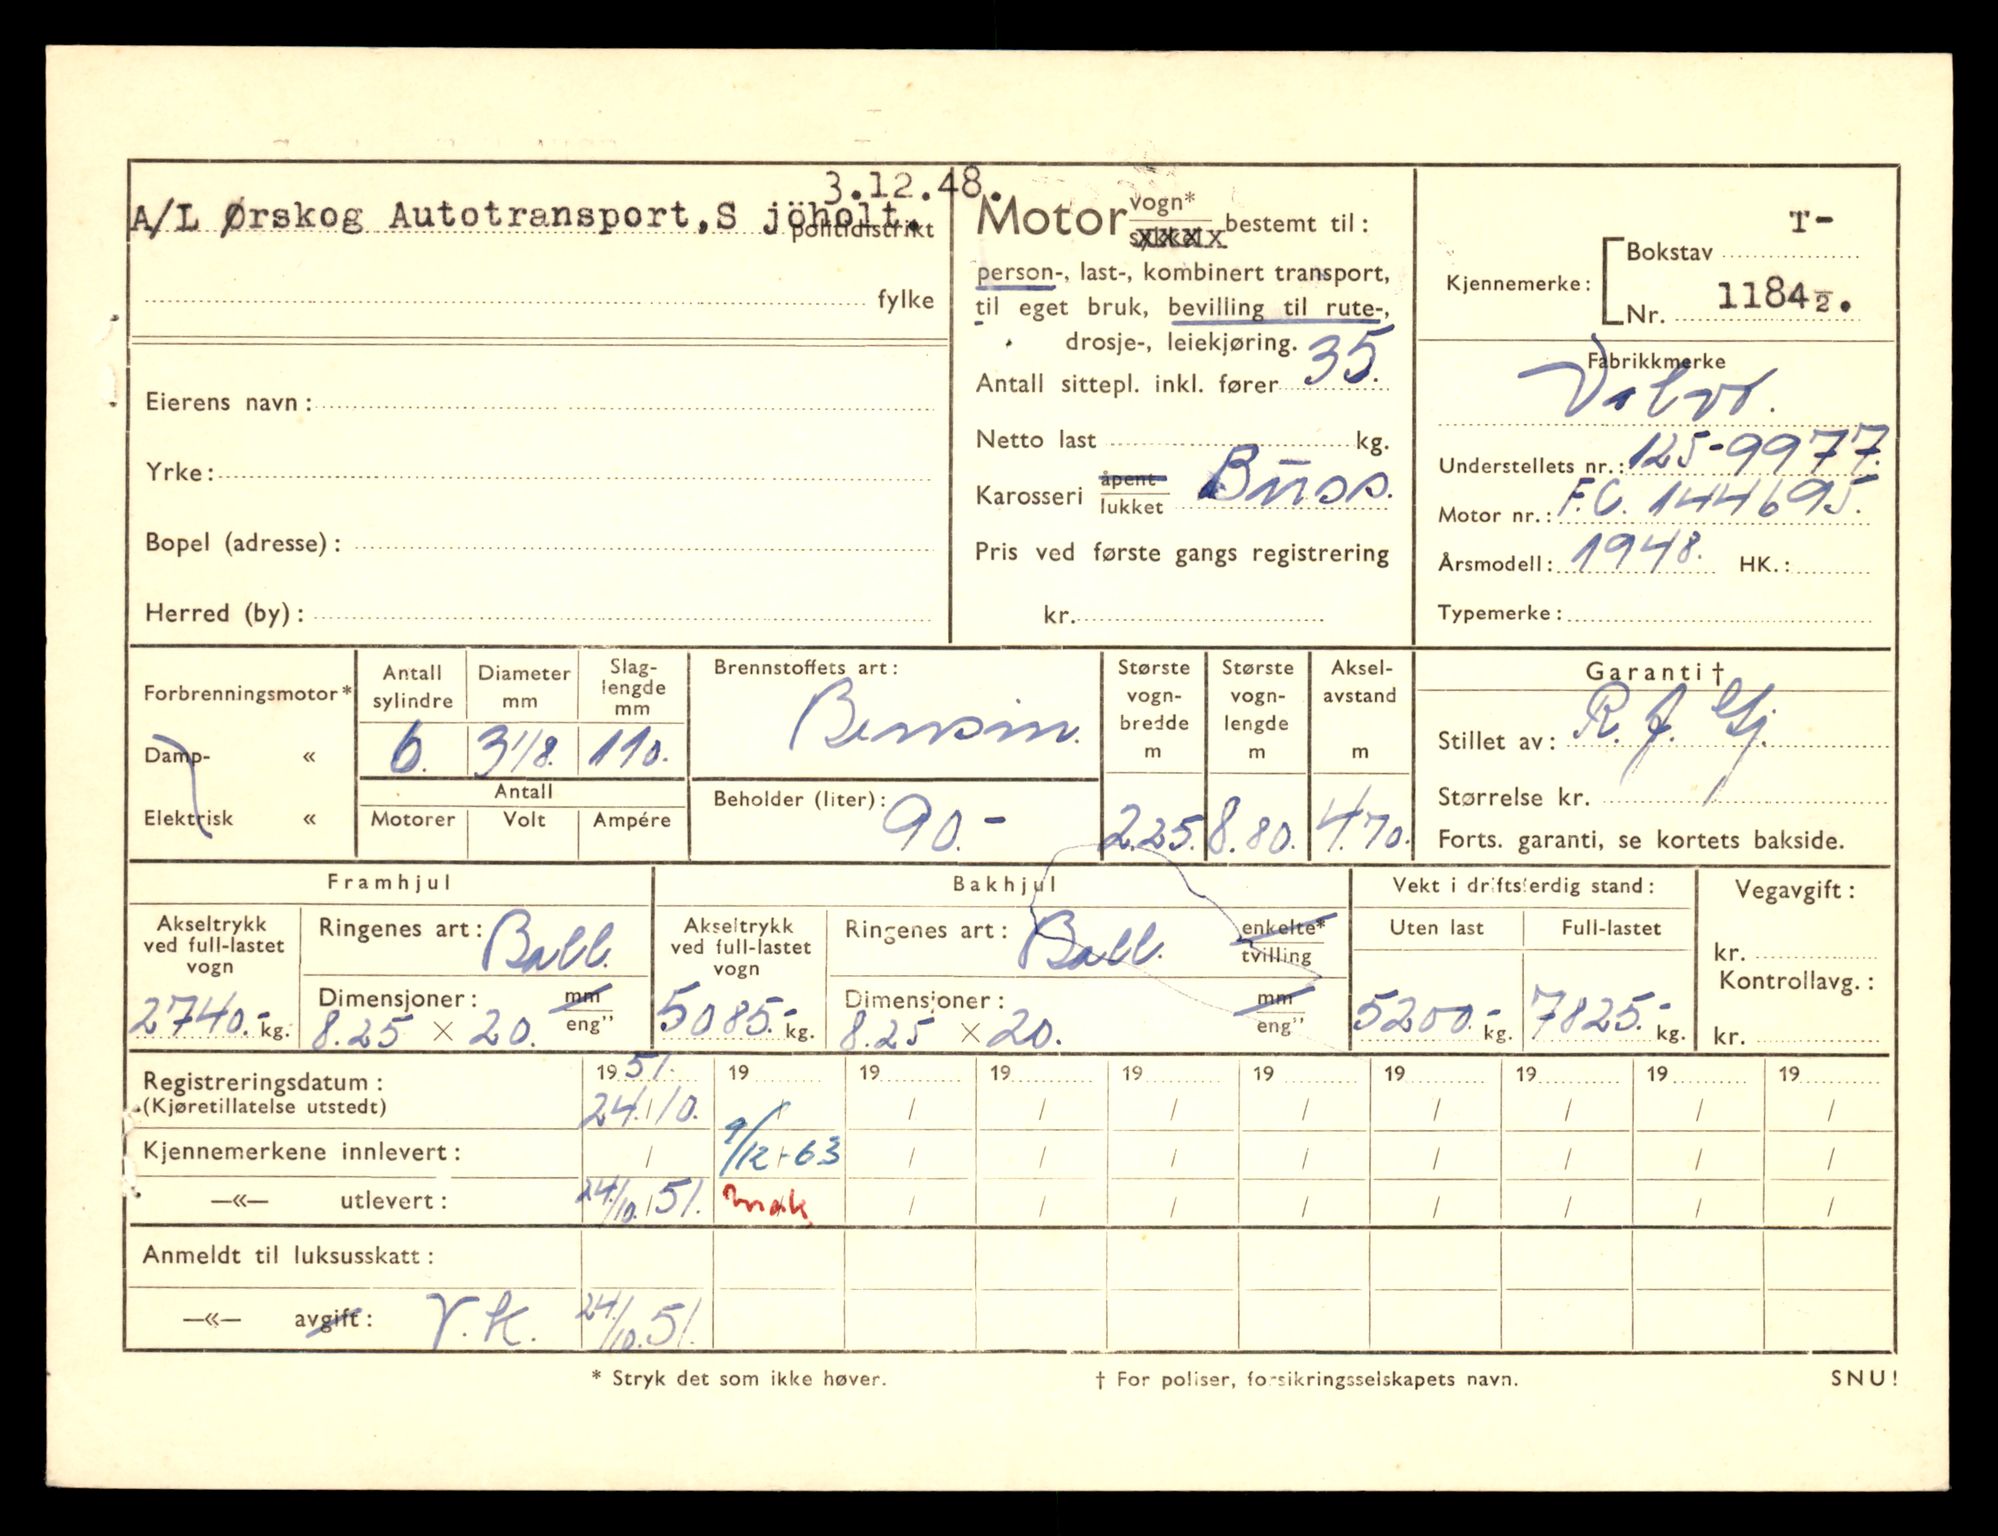 3.12.48.
A/L Ørskog Autotransport,S jöholt.
politidistrikt
fylke
Eierens navn:
Yrke:
Bopel (adresse):
Herred (by):
Motor vogn* bestemt til:
person-, last-, kombinert transport,
til eget bruk, bevilling til rute-,
drosje-, leiekjøring.
Antall sittepl. inkl. fører 35.
Netto last kg.
Karosseri åpent lukket Buss.
Pris ved første gangs registrering
kr.
T-
Kjennemerke: Bokstav
Nr. 1184½.
Fabrikkmerke
Volvo.
Understellets nr.: 125-9977.
Motor nr.: F.C. 144695.
Årsmodell: 1948. HK.:
Typemerke:
Forbrenningsmotor*
Damp- «
Elektrisk «
Antall sylindre
6.
Diameter mm
3 1/8.
Slag-lengde mm
110.
Antall
Motorer Volt Ampére
Brennstoffets art:
Bensin.
Beholder (liter):
90.-
Største vogn-bredde m
2.25.
Største vogn-lengde m
8.80.
Aksel-avstand m
4.70.
Garanti †
Stillet av: R. f. Gj.
Størrelse kr.
Forts. garanti, se kortets bakside.
Framhjul
Akseltrykk ved full-lastet vogn
2740.- kg.
Ringenes art: Ball.
Dimensjoner: mm eng"
8.25 × 20.
Bakhjul
Akseltrykk ved full-lastet vogn
5085.- kg.
Ringenes art: Ball. enkelte* tvilling
Dimensjoner: mm eng"
8.25 × 20.
Vekt i driftsferdig stand:
Uten last Full-lastet
5200.- kg. 7825.- kg.
Vegavgift:
kr.
Kontrollavg.:
kr.
Registreringsdatum: 1951. 19 19 19 19 19 19 19 19 19
(Kjøretillatelse utstedt) 24./10. / / / / / / / / /
Kjennemerkene innlevert: / 9/12-63 / / / / / / / /
—«— utlevert: 24./10. 51. / / / / / / / /
Anmeldt til luksusskatt:
—«— avgift: V.k. 24./10. 51.
* Stryk det som ikke høver. † For poliser, forsikringsselskapets navn. SNU!